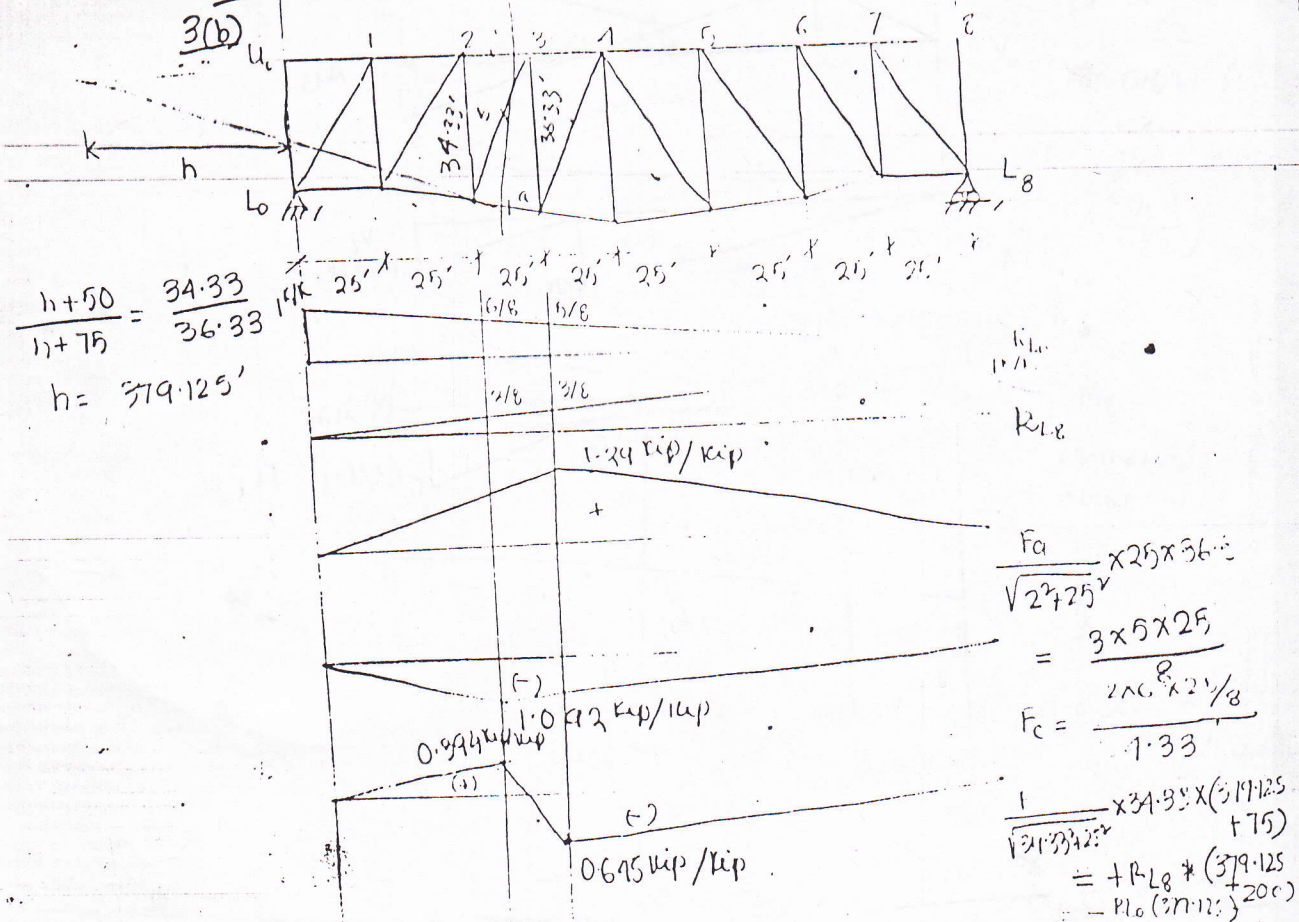 3(b)
U₀ 1 2 3 4 5 6 7 8
34.33' S 36.33'
h
L₀ a L₈
25' 25' 25' 25' 25' 25' 25' 25'
h+50 / h+75 = 34.33 / 36.33
h = 379.125'
1K/K
6/8 5/8
2/8 3/8
R_L8
1.24 Kip/Kip
+
(-)
1.092 Kip/Kip
0.394 Kip/Kip
(+)
(-)
0.675 Kip/Kip
Fa / √2²+25² × 25 × 36
= 3×5×25 / 8
Fc = 2×6×25/8 / 1.33
1 / √34.33²+25² × 34.33 × (379.125 +75)
= + R_L8 * (379.125 + 200)
- R_L0 (379.125)